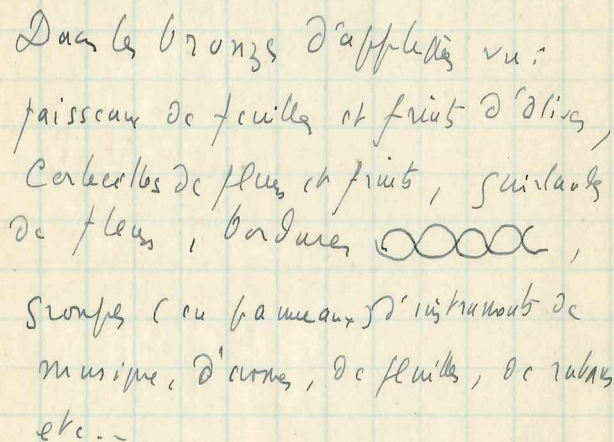 Dans les bronzes d'appliques vu :
faisceaux de feuilles et fruits d'olives,
Corbeilles de fleurs et fruits, guirlandes
de fleurs, bordures ,
groupes (en panneaux) d'instruments de
musique, d'armes, de feuilles, de rubans
etc...